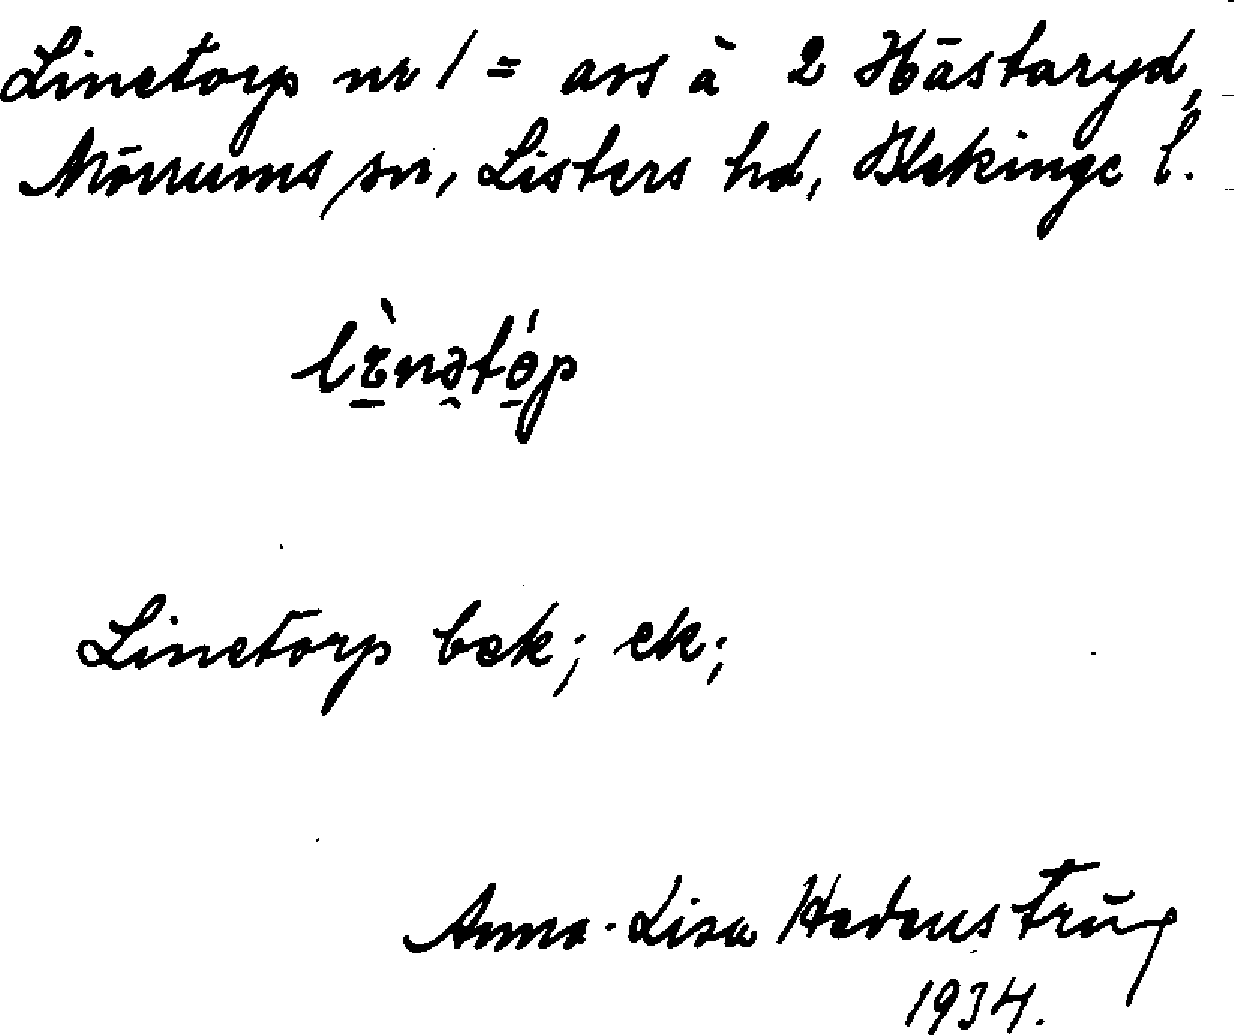 Linetorp nr 1 = avs à 2 Hästaryd,
Mörrums sn, Listers hd, Blekinge l.
Linetorp bek; ek;
Anna-Lisa Hedenstrüg
1934.